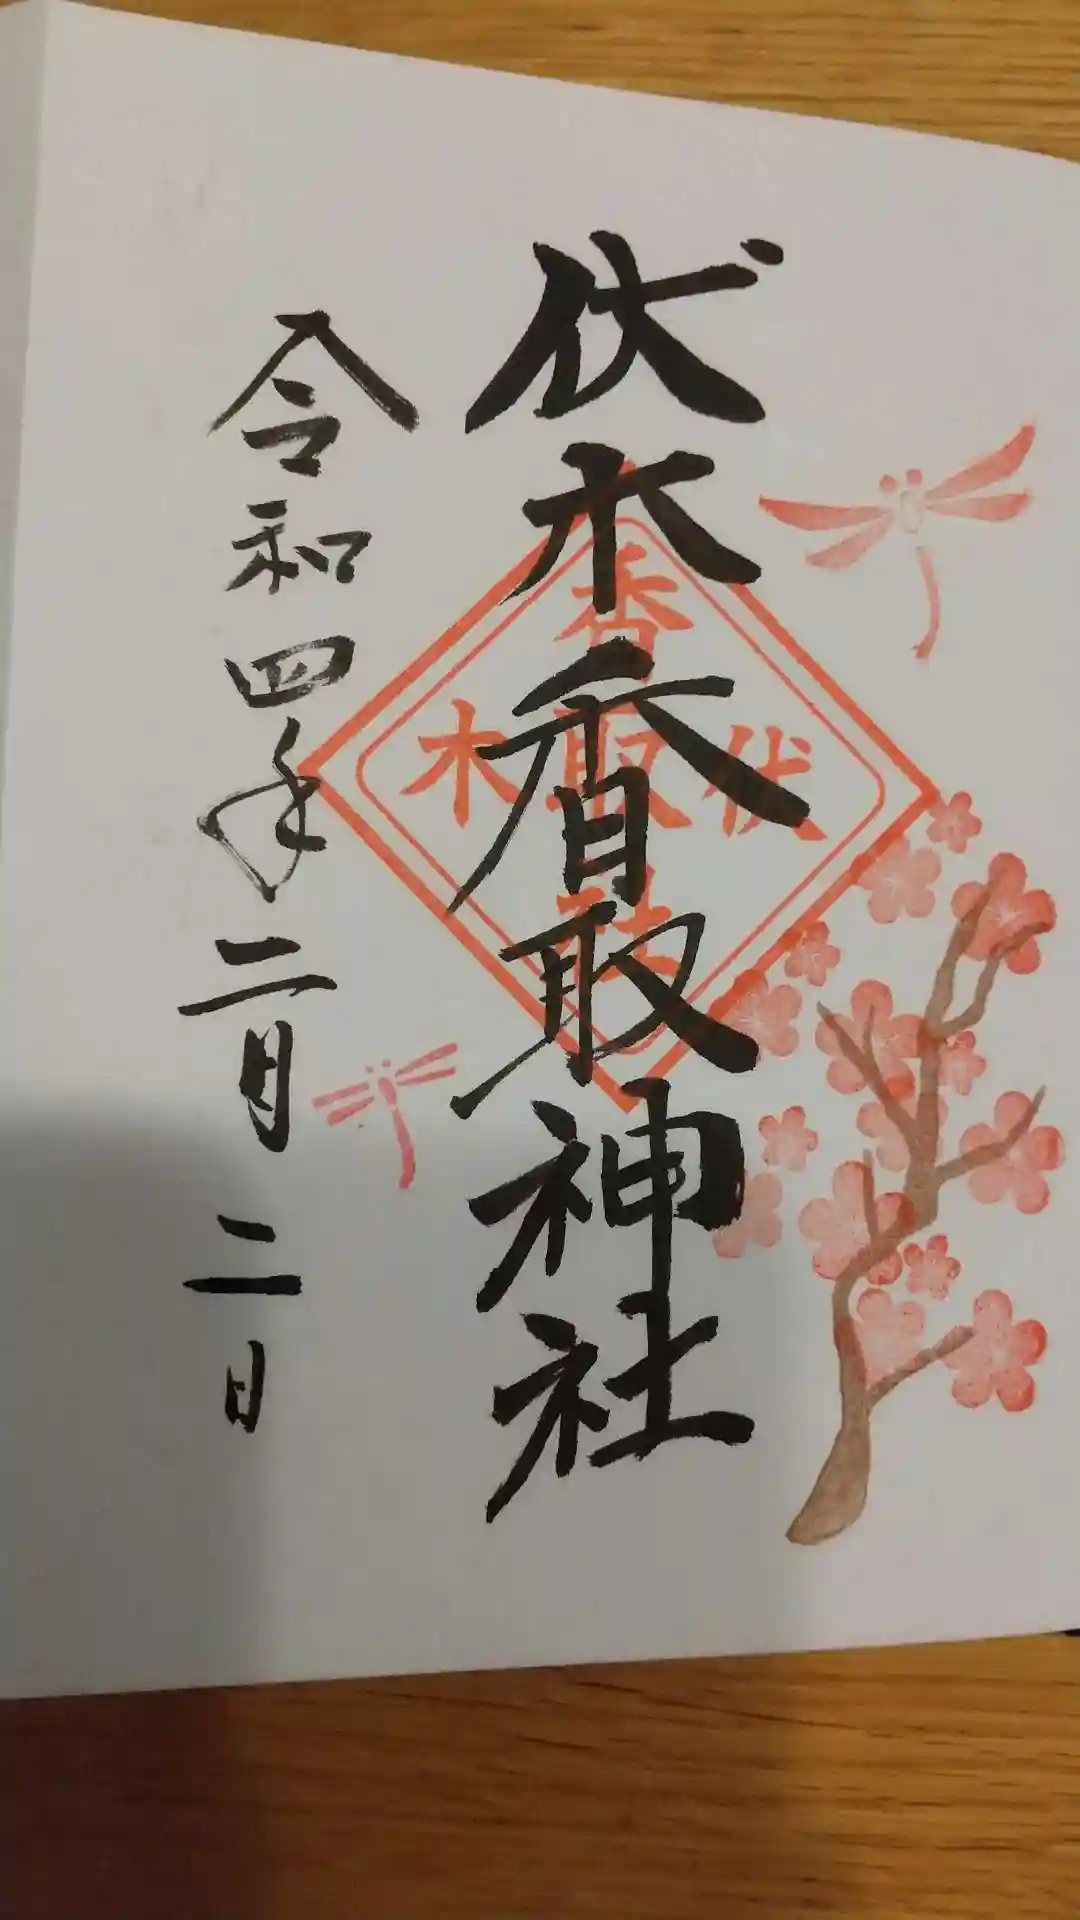 伏木香取神社
令和四年二月二日
香
伏取木
社